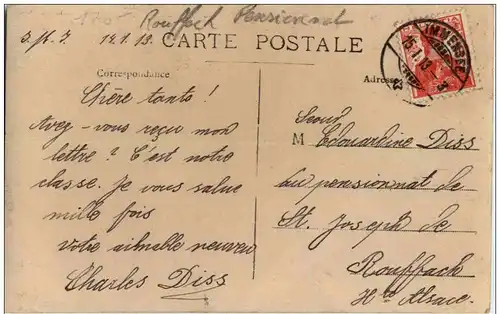 Rouffach Pensionnat
14.1.13.
CARTE POSTALE
Correspondance
Adresse
IMMENSEE
15.1.13
Chère tante!
Avez-vous reçu mon
lettre? C'est notre
classe. Je vous salue
mille fois
votre aimable neuveu
Charles Diss
Soeur
M Edouardine Diss
au pensionnat de
St. Joseph de
Rouffach
Hte Alsace.